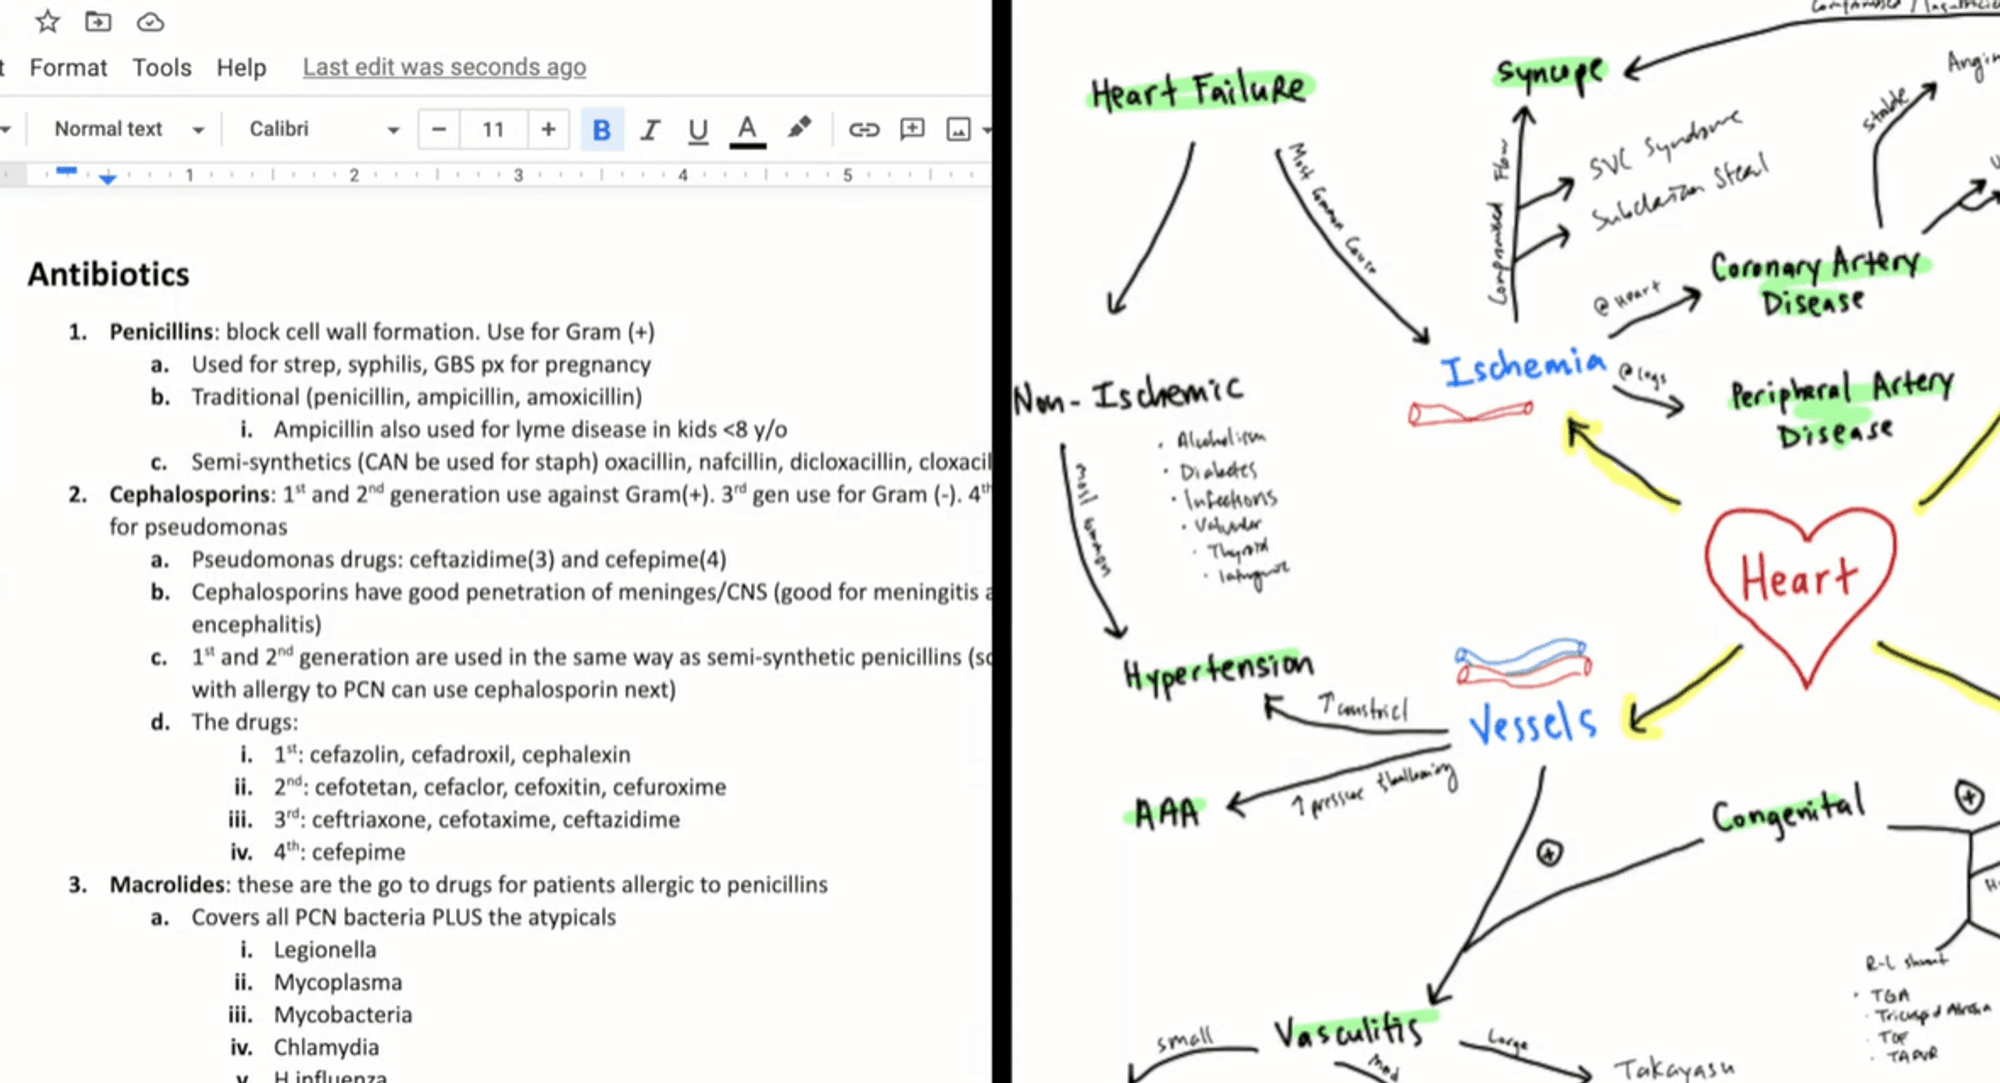 Format Tools Help Last edit was seconds ago
Normal text Calibri 11 B I U A
1 2 3 4 5
Antibiotics
1. Penicillins: block cell wall formation. Use for Gram (+)
a. Used for strep, syphilis, GBS px for pregnancy
b. Traditional (penicillin, ampicillin, amoxicillin)
i. Ampicillin also used for lyme disease in kids <8 y/o
c. Semi-synthetics (CAN be used for staph) oxacillin, nafcillin, dicloxacillin, cloxacil
2. Cephalosporins: 1st and 2nd generation use against Gram(+). 3rd gen use for Gram (-). 4th
for pseudomonas
a. Pseudomonas drugs: ceftazidime(3) and cefepime(4)
b. Cephalosporins have good penetration of meninges/CNS (good for meningitis a
encephalitis)
c. 1st and 2nd generation are used in the same way as semi-synthetic penicillins (so
with allergy to PCN can use cephalosporin next)
d. The drugs:
i. 1st: cefazolin, cefadroxil, cephalexin
ii. 2nd: cefotetan, cefaclor, cefoxitin, cefuroxime
iii. 3rd: ceftriaxone, cefotaxime, ceftazidime
iv. 4th: cefepime
3. Macrolides: these are the go to drugs for patients allergic to penicillins
a. Covers all PCN bacteria PLUS the atypicals
i. Legionella
ii. Mycoplasma
iii. Mycobacteria
iv. Chlamydia
v. H influenza
Heart Failure
Most Common Cause
Syncope
Compromised Flow
SVC Syndrome
Subclavian Steal
stable
Angin
@ Heart
Coronary Artery
Disease
Ischemia
@ legs
Peripheral Artery
Disease
Non-Ischemic
• Alcoholism
• Diabetes
• Infections
• Valvular
• Thyroid
most common
Heart
Hypertension
↑ constrict
Vessels
↑ pressure
AAA
Congenital
+
+
R-L shunt
• TGA
• Tricuspid Atresia
• TOF
• TAPVR
Vasculitis
small
Med
Large
Takayasu